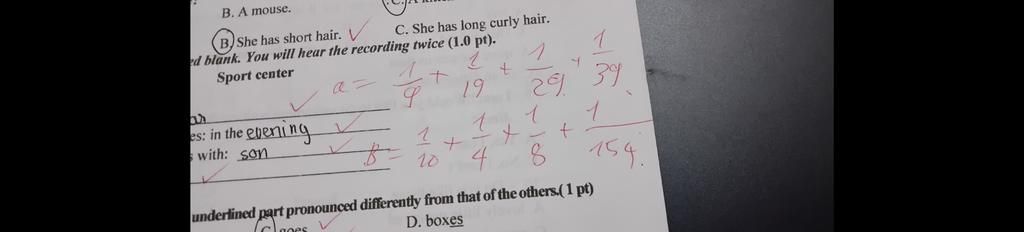 B. A mouse.
B. She has short hair. C. She has long curly hair.
ed blank. You will hear the recording twice (1.0 pt).
Sport center
a = 1/9 + 1/19 + 1/29 + 1/39
es: in the evening
s with: son
B = 1/10 + 1/4 + 1/8 + 1/154
underlined part pronounced differently from that of the others.( 1 pt)
C goes D. boxes